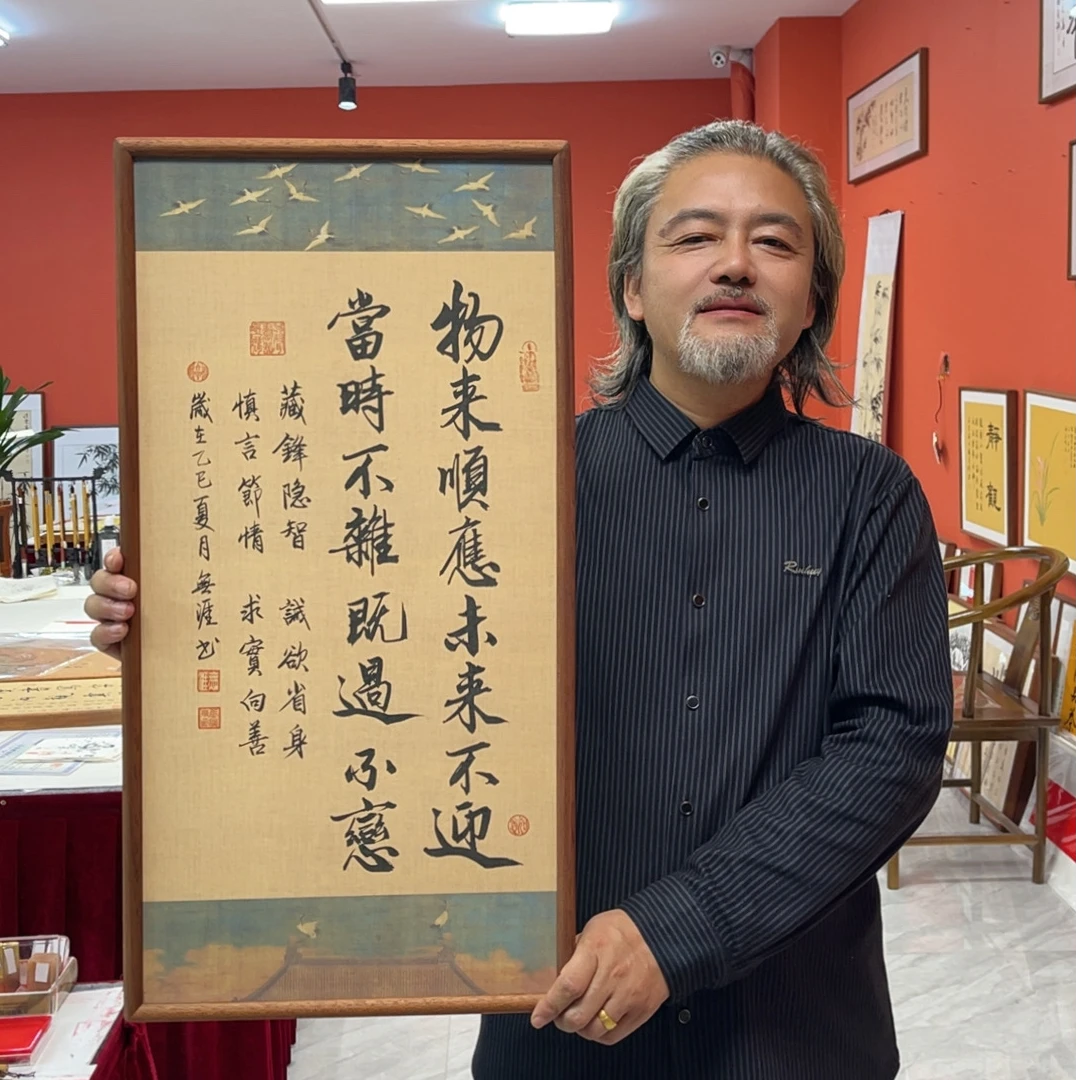 物来順應未来不迎
當時不雜既過不戀
藏鋒隐智 誡欲省身
慎言節情 求實向善
歲在乙巳夏月無涯书
靜觀